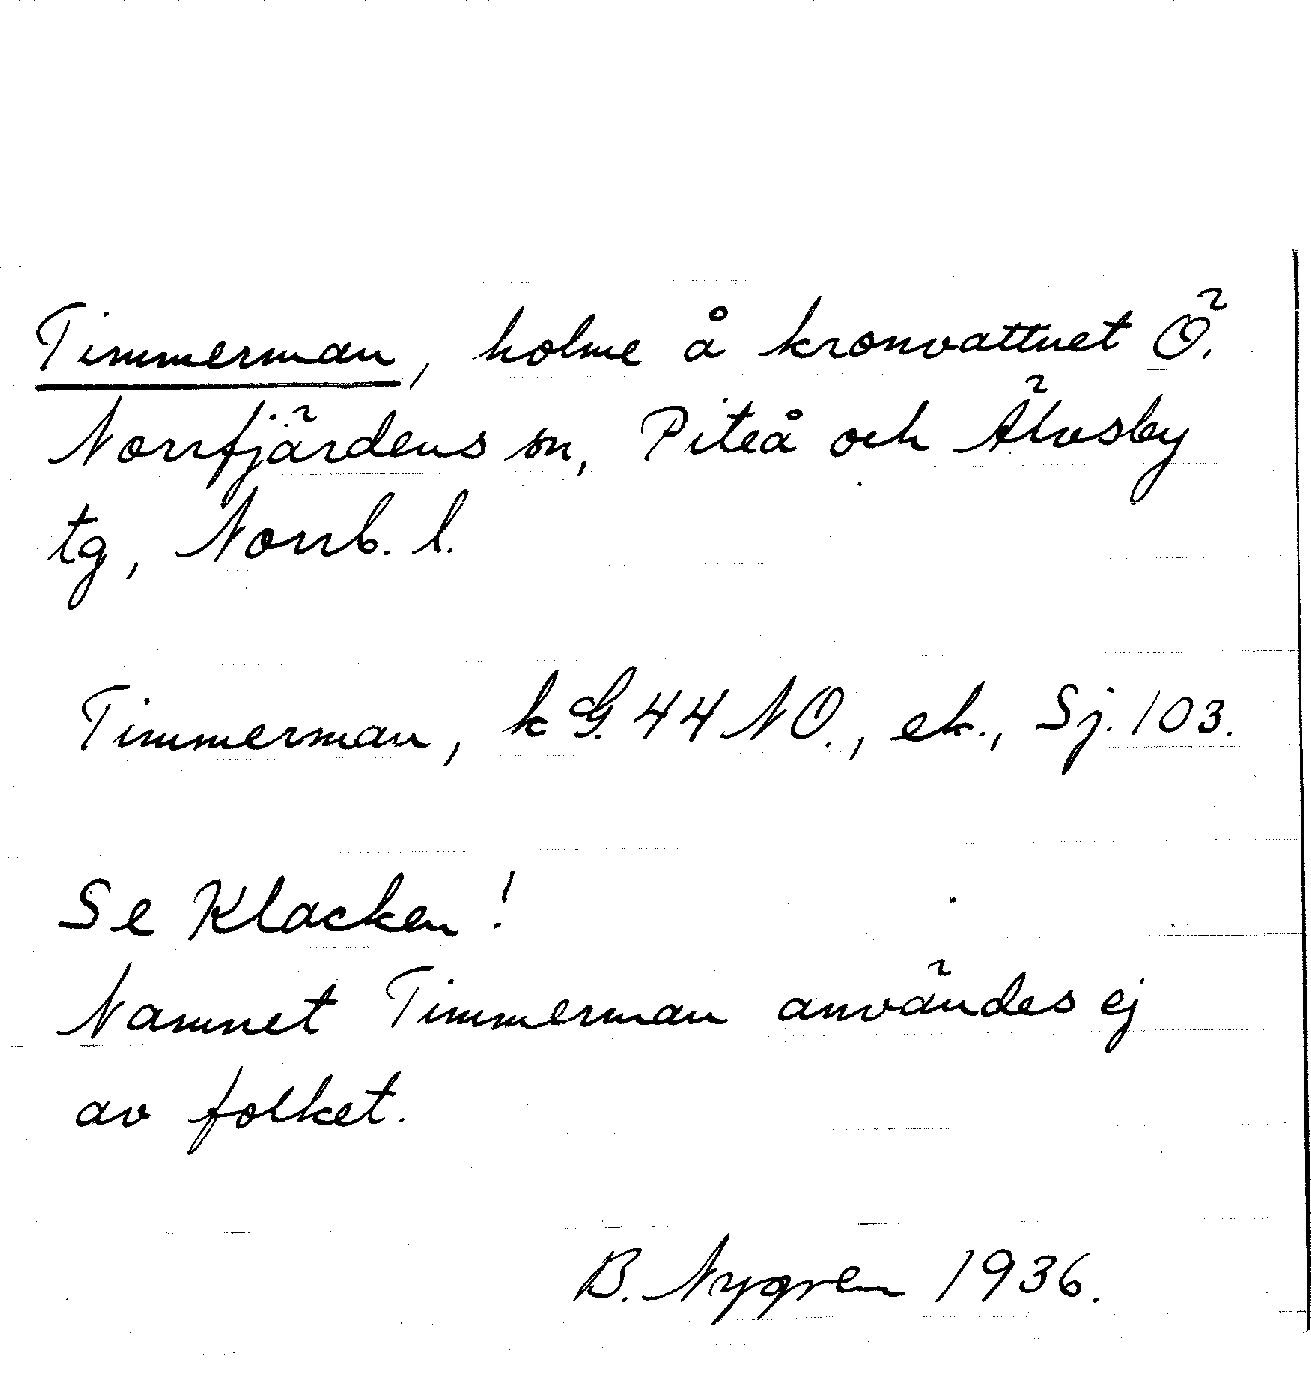 Timmerman, holme å kronvattnet Ö.
Norrfjärdens sn, Piteå och Älvsby
tg, Norrb. l.
Timmerman, k G. 44 NO., ek., Sj. 103.
Se Klacken!
Namnet Timmerman användes ej
av folket.
B. Nygren 1936.